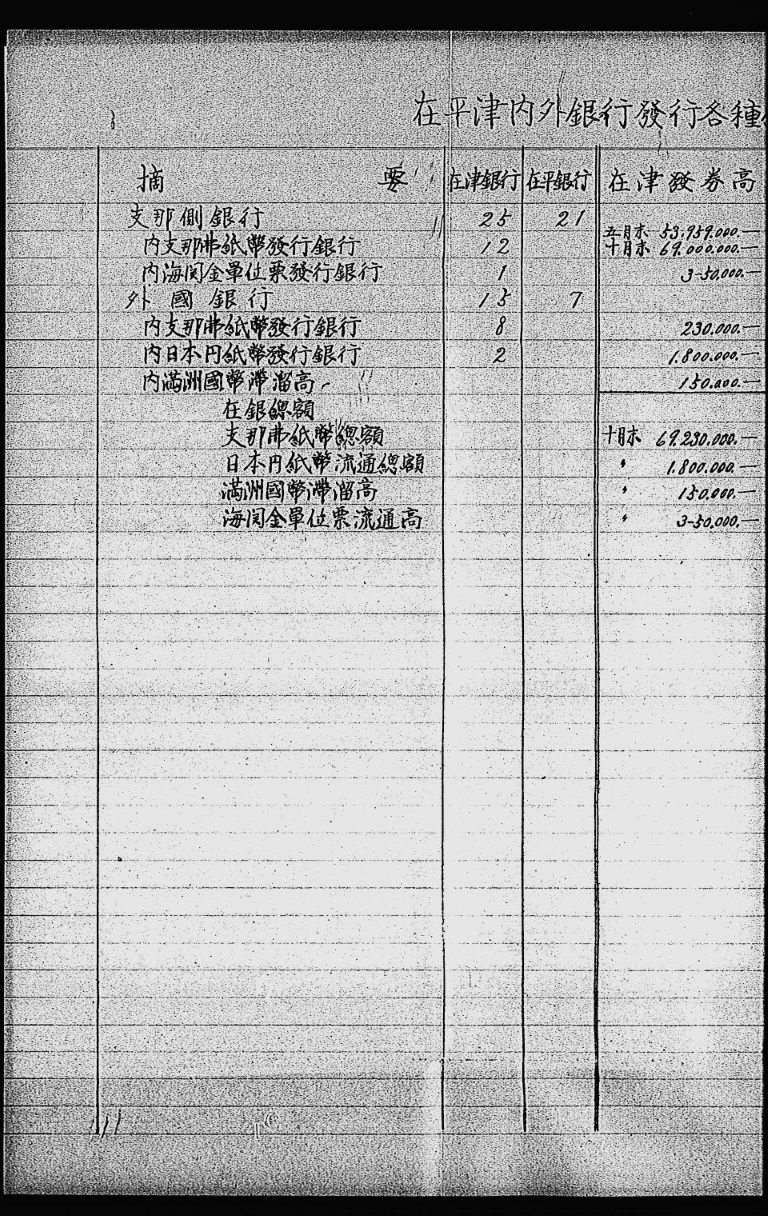 在平津内外銀行發行各種
摘 要 在津銀行 在平銀行 在津發券高
支那側銀行 25 21 五月末 53,959.000.—
内支那弗紙幣發行銀行 12 十月末 69.000.000.—
内海関金單位票發行銀行 1 3-50,000.—
外國銀行 15 7
内支那弗紙幣發行銀行 8 230.000.—
内日本円紙幣發行銀行 2 1.800.000.—
内満洲國幣滯溜高 150.000.—
在銀總額
支那弗紙幣總額 十月末 69.230.000.—
日本円紙幣流通總額 〃 1.800.000.—
満洲國幣滯溜高 〃 150.000.—
海関金單位票流通高 〃 3-50,000.—